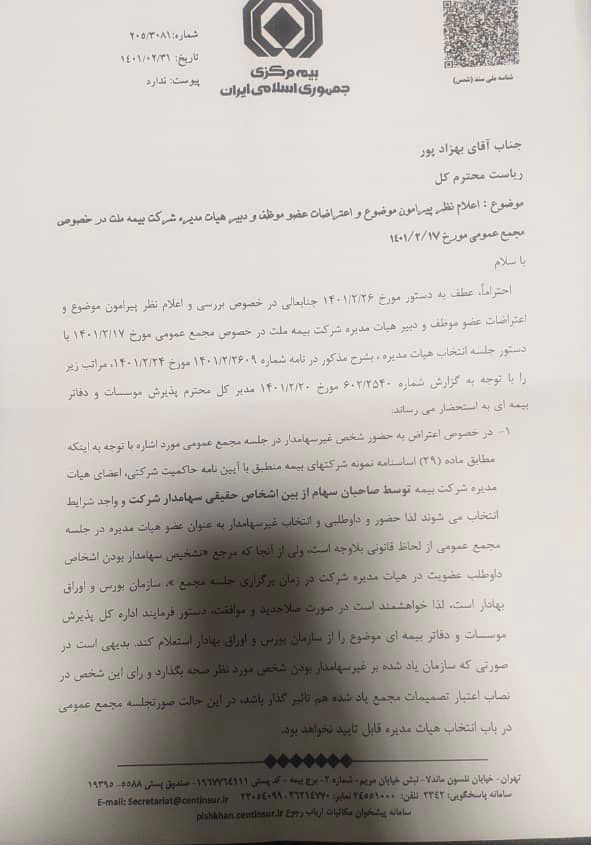 شماره: ۲۰۵/۳۰۸۱
تاریخ: ۱۴۰۱/۰۲/۳۱
پیوست: ندارد
بیمه مرکزی
جمهوری اسلامی ایران
شناسه ملی سند (شمس)
جناب آقای بهزاد پور
ریاست محترم کل
موضوع : اعلام نظر پیرامون موضوع و اعتراضات عضو موظف و دبیر هیات مدیره شرکت بیمه ملت در خصوص
مجمع عمومی مورخ ۱۴۰۱/۲/۱۷
با سلام
احتراماً، عطف به دستور مورخ ۱۴۰۱/۲/۲۶ جنابعالی در خصوص بررسی و اعلام نظر پیرامون موضوع و
اعتراضات عضو موظف و دبیر هیات مدیره شرکت بیمه ملت در خصوص مجمع عمومی مورخ ۱۴۰۱/۲/۱۷ با
دستور جلسه انتخاب هیات مدیره ، بشرح مذکور در نامه شماره ۱۴۰۱/۲/۲۶۰۹ مورخ ۱۴۰۱/۲/۲۴، مراتب زیر
را با توجه به گزارش شماره ۶۰۲/۲۵۴۰ مورخ ۱۴۰۱/۲/۲۰ مدیر کل محترم پذیرش موسسات و دفاتر
بیمه ای به استحضار می رساند:
۱- در خصوص اعتراض به حضور شخص غیرسهامدار در جلسه مجمع عمومی مورد اشاره با توجه به اینکه
مطابق ماده (۲۹) اساسنامه نمونه شرکتهای بیمه منطبق با آیین نامه حاکمیت شرکتی، اعضای هیات
مدیره شرکت بیمه توسط صاحبان سهام از بین اشخاص حقیقی سهامدار شرکت و واجد شرایط
انتخاب می شوند لذا حضور و داوطلبی و انتخاب غیرسهامدار به عنوان عضو هیات مدیره در جلسه
مجمع عمومی از لحاظ قانونی بلاوجه است، ولی از آنجا که مرجع «تشخیص سهامدار بودن اشخاص
داوطلب عضویت در هیات مدیره شرکت در زمان برگزاری جلسه مجمع »، سازمان بورس و اوراق
بهادار است، لذا خواهشمند است در صورت صلاحدید و موافقت، دستور فرمایند اداره کل پذیرش
موسسات و دفاتر بیمه ای موضوع را از سازمان بورس و اوراق بهادار استعلام کند. بدیهی است در
صورتی که سازمان یاد شده بر غیرسهامدار بودن شخص مورد نظر صحه بگذارد و رای این شخص در
نصاب اعتبار تصمیمات مجمع یاد شده هم تاثیر گذار باشد، در این حالت صورتجلسه مجمع عمومی
در باب انتخاب هیات مدیره قابل تایید نخواهد بود.
تهران- خیابان نلسون ماندلا- نبش خیابان مریم- شماره ۲- برج بیمه - کد پستی ۱۹۶۷۷۶۴۱۱۱- صندوق پستی ۵۵۸۸- ۱۹۳۹۵
سامانه پاسخگویی: ۲۳۴۲ تلفن: ۲۴۵۵۱۰۰۰ نمابر: ۲۶۲۱۴۷۷۰ ،۲۲۰۵۴۰۹۹ E-mail: Secretariat@centinsur.ir
سامانه پیشخوان مکاتبات ارباب رجوع pishkhan.centinsur.ir